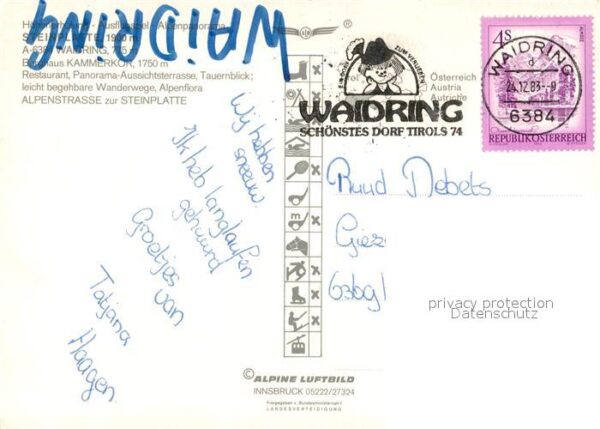 WAIDRING
STEINPLATTE, 1900 m
A-6384 WAIDRING, 775 m
Berghaus KAMMERKÖR, 1750 m
Restaurant, Panorama-Aussichtsterrasse, Tauernblick;
leicht begehbare Wanderwege, Alpenflora
ALPENSTRASSE zur STEINPLATTE
Österreich
Austria
Autriche
WAIDRING
SCHÖNSTES DORF TIROLS 74
4S
REPUBLIK ÖSTERREICH
WAIDRING
d
24.12.83--9
6384
Wij hebben
sneeuw.
Ik heb langlaufen
gehuurd
Groetjes van
Tatjana
Haagen
Ruud Debets
Giez
6369
privacy protection
Datenschutz
© ALPINE LUFTBILD
INNSBRUCK 05222/27324
Freigegeben v. Bundesministerium f.
LANDESVERTEIDIGUNG